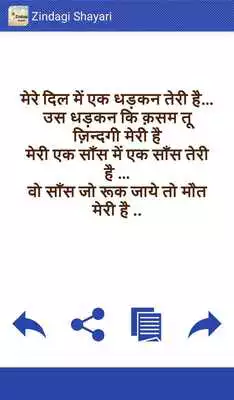 Zindagi Shayari
मेरे दिल में एक धड़कन तेरी है...
उस धड़कन कि क़सम तू
ज़िन्दगी मेरी है
मेरी एक साँस में एक साँस तेरी
है ...
वो साँस जो रूक जाये तो मौत
मेरी है ..